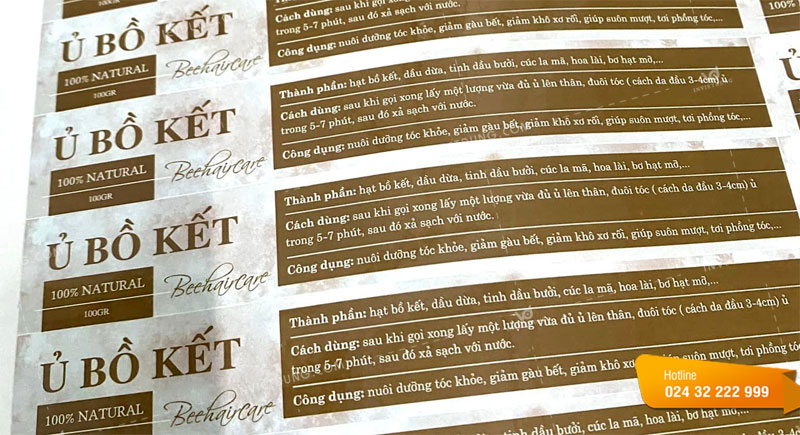 100GR
Cách dùng: sau khi gọi xong
trong 5-7 phút, sau đó xả sạch với nước.
Công dụng: nuôi dưỡng tóc khỏe, giảm gàu bết, giảm khô xơ rối, giúp suôn mượt, tơi phồng tóc,...
Ủ BỒ KẾT
100% NATURAL
Beehaircare
100GR
Thành phần: hạt bồ kết, dầu dừa, tinh dầu bưởi, cúc la mã, hoa lài, bơ hạt mỡ,...
Cách dùng: sau khi gọi xong lấy một lượng vừa đủ ủ lên thân, đuôi tóc ( cách da đầu 3-4cm) ủ
trong 5-7 phút, sau đó xả sạch với nước.
Công dụng: nuôi dưỡng tóc khỏe, giảm gàu bết, giảm khô xơ rối, giúp suôn mượt, tơi phồng tóc,...
Ủ BỒ KẾT
100% NATURAL
Beehaircare
100GR
Thành phần: hạt bồ kết, dầu dừa, tinh dầu bưởi, cúc la mã, hoa lài, bơ hạt mỡ,...
Cách dùng: sau khi gọi xong lấy một lượng vừa đủ ủ lên thân, đuôi tóc ( cách da đầu 3-4cm) ủ
trong 5-7 phút, sau đó xả sạch với nước.
Công dụng: nuôi dưỡng tóc khỏe, giảm gàu bết, giảm khô xơ rối, giúp suôn mượt, tơi phồng tóc,...
Ủ BỒ KẾT
100% NATURAL
Beehaircare
100GR
Thành phần: hạt bồ kết, dầu dừa, tinh dầu bưởi, cúc la mã, hoa lài, bơ hạt mỡ,...
Cách dùng: sau khi gọi xong lấy một lượng vừa đủ ủ lên thân, đuôi tóc ( cách da đầu 3-4cm) ủ
trong 5-7 phút, sau đó xả sạch với nước.
Công dụng: nuôi dưỡng tóc khỏe, giảm gàu bết, giảm khô xơ suôn mượt, tơi phồng tóc,...
Ủ BỒ KẾT
100% NATURAL
Beehaircare
Hotline
024 32 222 999